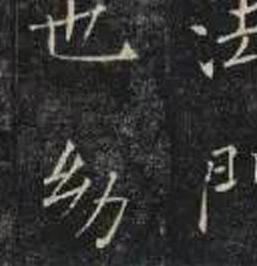 法門
也幼